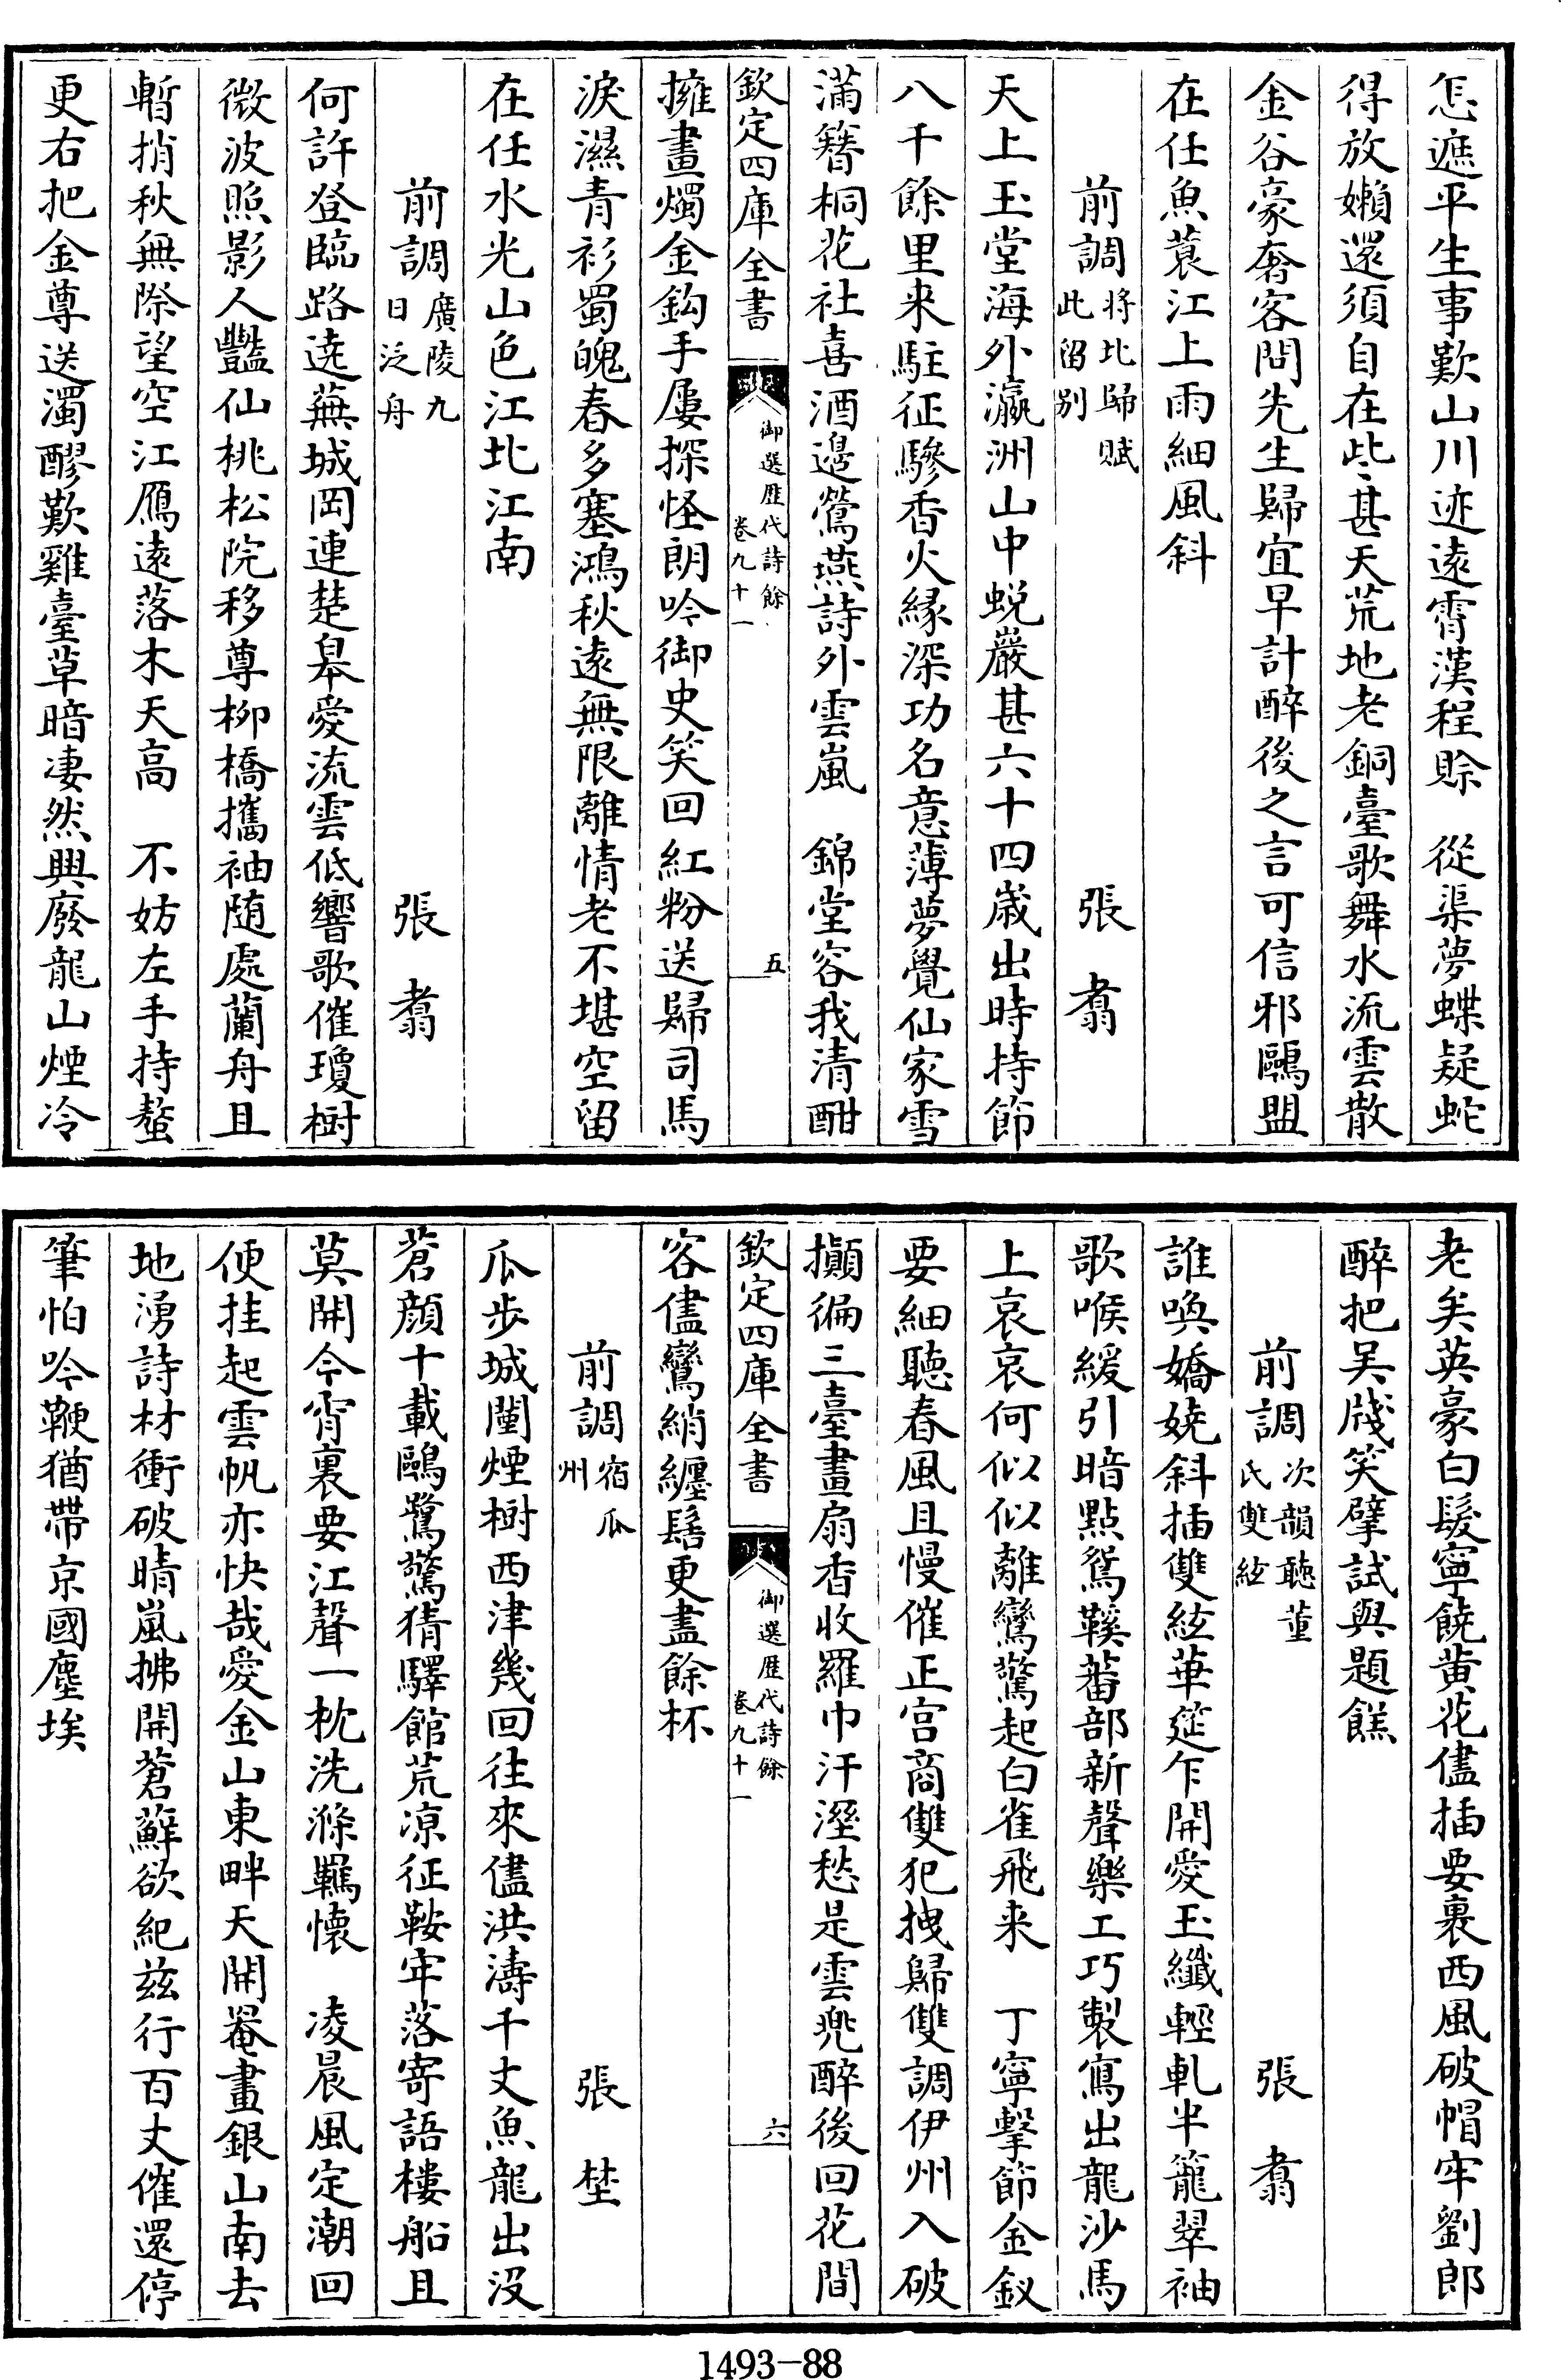 怎遮平生事歎山川迹逺霄漢程賒　從渠夢蝶疑蛇
得放嬾還須自在些甚天荒地老銅臺歌舞水流雲散
金谷豪奢客問先生歸宜早計醉後之言可信邪鷗盟
在任魚蓑江上雨細風斜
前調將北歸賦此留别　張翥
天上玉堂海外瀛洲山中蛻巖甚六十四歲出時持節
八千餘里来駐征驂香火緣深功名意薄夢覺仙家雪
滿簪桐花社喜酒邉鶯燕詩外雲嵐　錦堂容我清酣
欽定四庫全書　御選歴代詩餘　卷九十一　五
擁畫燭金鈎手屢探怪朗吟御史笑回紅粉送歸司馬
淚濕青衫蜀魄春多塞鴻秋逺無限離情老不堪空留
在任水光山色江北江南
前調廣陵九日泛舟　張翥
何許登臨路遶蕪城岡連楚皋愛流雲低響歌催瓊樹
微波照影人豔仙桃松院移尊柳橋攜袖随處蘭舟且
暫捎秋無際望空江鴈逺落木天高　不妨左手持螯
更右把金尊送濁醪歎雞臺草暗凄然興廢龍山煙冷
老矣英豪白髮寧饒黄花儘插要裹西風破帽牢劉郎
醉把吴牋笑擘試與題餻
前調次韻聽董氏雙絃　張翥
誰喚嬌嬈斜插雙絃華筵乍開愛玉纖輕軋半籠翠袖
歌喉緩引暗點鴛鞵蕃部新聲樂工巧製寫出龍沙馬
上哀哀何似似離鸞驚起白雀飛来　丁寧擊節金釵
要細聽春風且慢催正宫商雙犯拽歸雙調伊州入破
攧徧三臺畫扇香收羅巾汗溼愁是雲兠醉後回花間
欽定四庫全書　御選歴代詩餘　卷九十一　六
客儘鸞綃纏髻更盡餘杯
前調宿瓜州　張埜
瓜步城闉煙樹西津幾回往來儘洪濤千丈魚龍出沒
蒼顔十載鷗鷺驚猜驛館荒凉征鞍牢落寄語樓船且
莫開今宵裏要江聲一枕洗滌羈懷　凌晨風定潮回
便挂起雲帆亦快哉愛金山東畔天開罨畫銀山南去
地湧詩材衝破晴嵐拂開蒼蘚欲紀兹行百丈催還停
筆怕吟鞭猶帶京國塵埃
1493—88